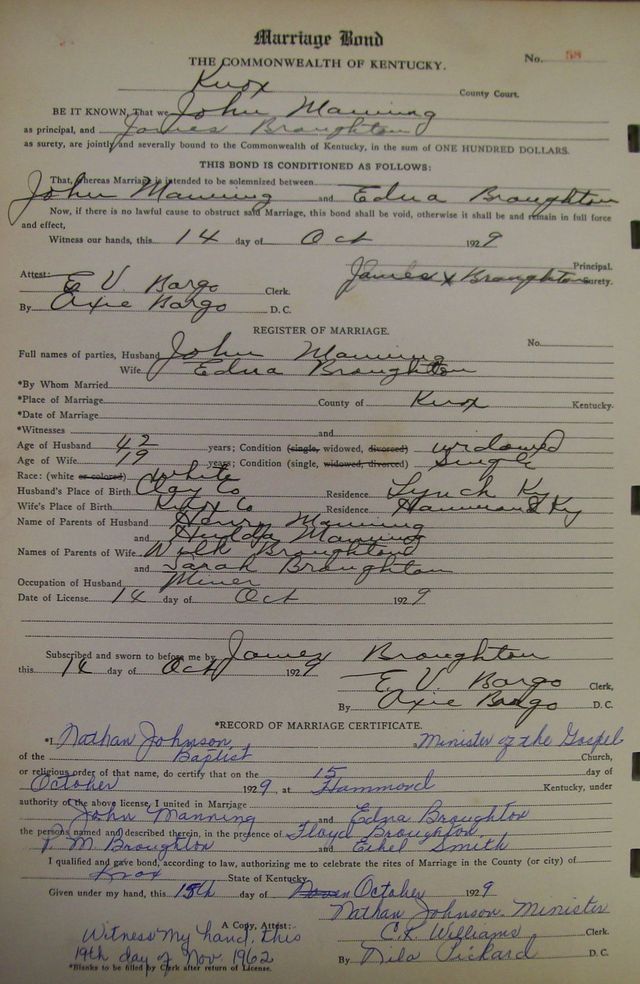 Marriage Bond
THE COMMONWEALTH OF KENTUCKY.
No. 58
Knox County Court.
BE IT KNOWN, That we John Manning
as principal, and James Broughton
as surety, are jointly and severally bound to the Commonwealth of Kentucky, in the sum of ONE HUNDRED DOLLARS.
THIS BOND IS CONDITIONED AS FOLLOWS:
That, whereas Marriage is intended to be solemnized between
John Manning and Edna Broughton
Now, if there is no lawful cause to obstruct said Marriage, this bond shall be void, otherwise it shall be and remain in full force
and effect,
Witness our hands, this 14 day of Oct 1929
Principal.
Attest: E V. Bargo Clerk. James x Broughton Surety.
By Oxie Bargo D. C.
REGISTER OF MARRIAGE.
No.
Full names of parties, Husband John Manning
Wife Edna Broughton
*By Whom Married
*Place of Marriage County of Knox Kentucky.
*Date of Marriage
*Witnesses and
Age of Husband 42 years; Condition (single, widowed, divorced) widowed
Age of Wife 19 years; Condition (single, widowed, divorced) Single
Race: (white or colored) White
Husband's Place of Birth Clay Co Residence Lynch Ky
Wife's Place of Birth Knox Co Residence Hammond Ky
Name of Parents of Husband Henry Manning
and Hulda Manning
Names of Parents of Wife Wilk Broughton
and Sarah Broughton
Occupation of Husband Miner
Date of License 14 day of Oct 1929
Subscribed and sworn to before me by James Broughton
this 14 day of Oct 1929
E. V. Bargo Clerk,
By Oxie Bargo D. C.
*RECORD OF MARRIAGE CERTIFICATE.
*I Nathan Johnson a Minister of the Gospel
of the Baptist Church,
or religious order of that name, do certify that on the 15 day of
October 1929, at Hammond Kentucky, under
authority of the above license, I united in Marriage
John Manning and Edna Broughton
the persons named and described therein, in the presence of Floyd Broughton,
P. M. Broughton and Ethel Smith
I qualified and gave bond, according to law, authorizing me to celebrate the rites of Marriage in the County (or city) of
Knox State of Kentucky
Given under my hand, this 15th day of October 1929
Nathan Johnson. Minister
A Copy, Attest: C.R. Williams Clerk.
Witness My hand, this
19th day of Nov 1962 By Nila Pickard D. C.
*Blanks to be filled by Clerk after return of License.